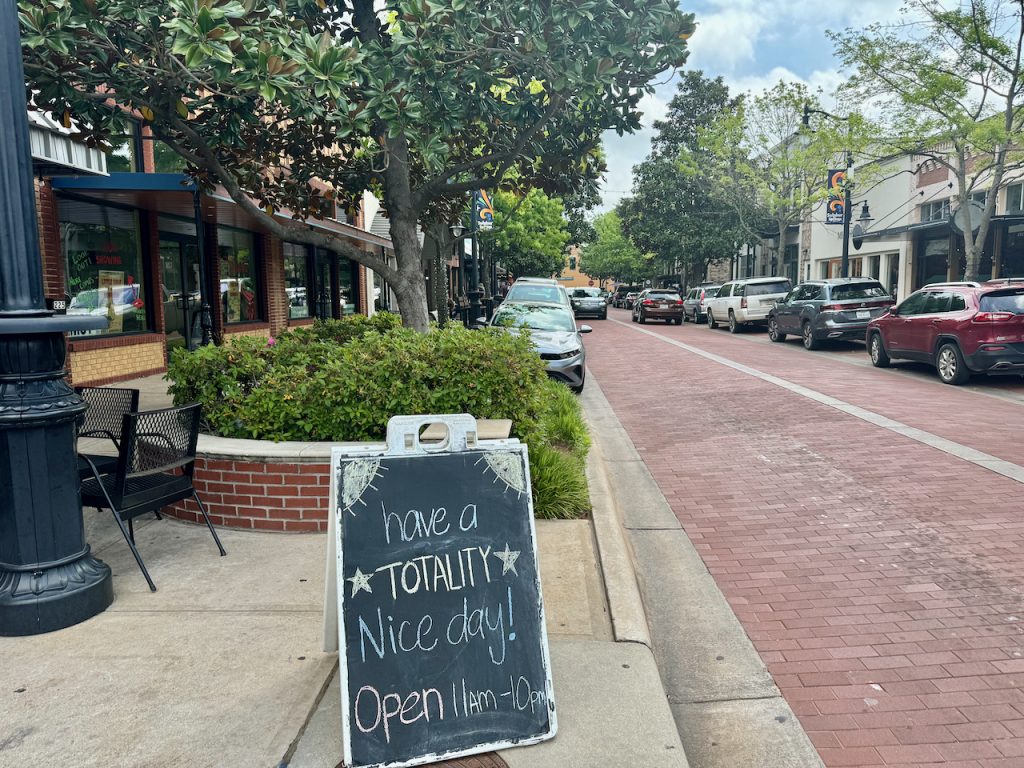 have a
TOTALITY
Nice day!
Open 11am-10pm